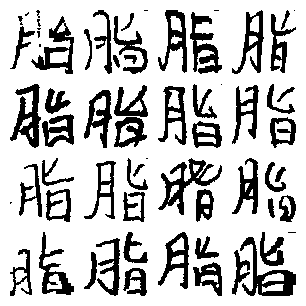 脂脂脂脂
脂脂脂脂
脂脂脂脂
脂脂脂脂